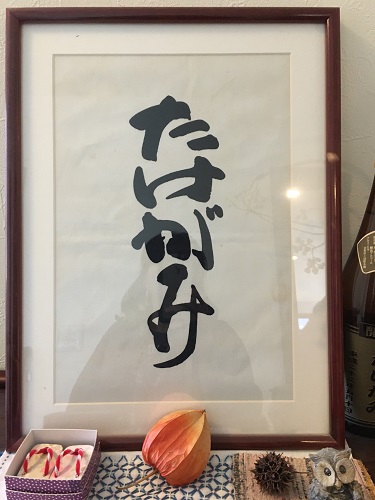 たけがみ